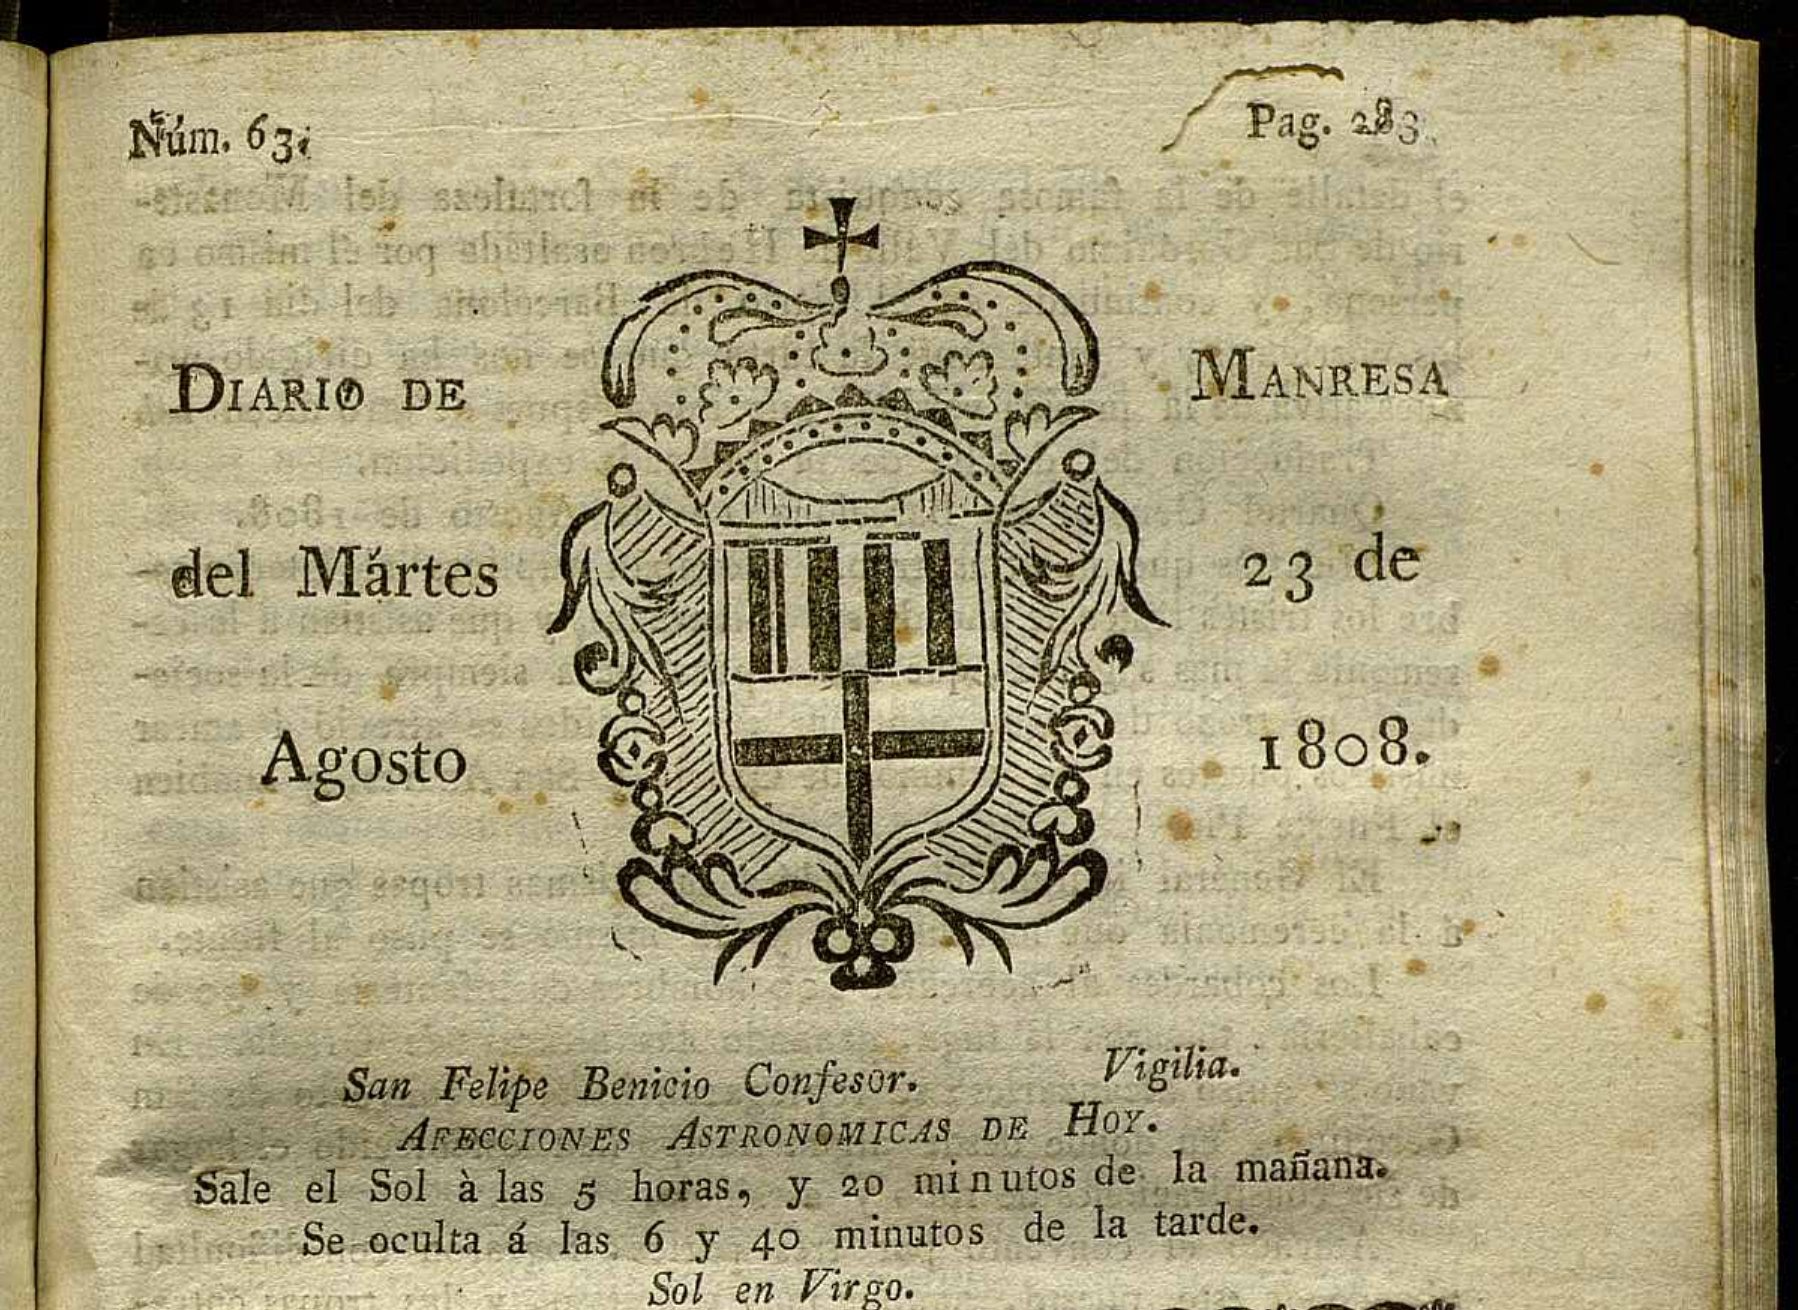 Núm. 63. Pag. 283.
DIARIO DE MANRESA
del Mártes 23 de
Agosto 1808.
San Felipe Benicio Confesor. Vigilia.
AFECCIONES ASTRONOMICAS DE HOY.
Sale el Sol à las 5 horas, y 20 minutos de la mañana.
Se oculta á las 6 y 40 minutos de la tarde.
Sol en Virgo.